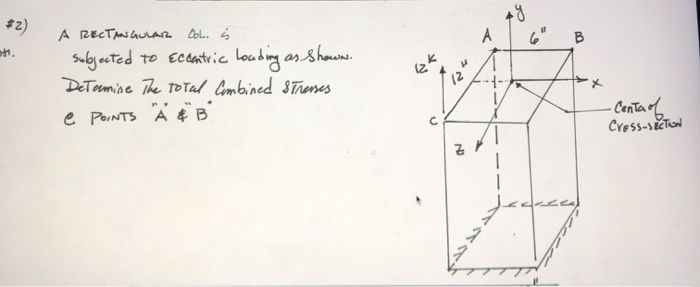 #2) A RECTANGULAR COL. is
subjected to Eccentric loading as shown.
Determine The TOTAL Combined STresses
@ POINTS "A" & "B"
y
A 6" B
12K
12"
x
C
Z
Center of
Cross-section